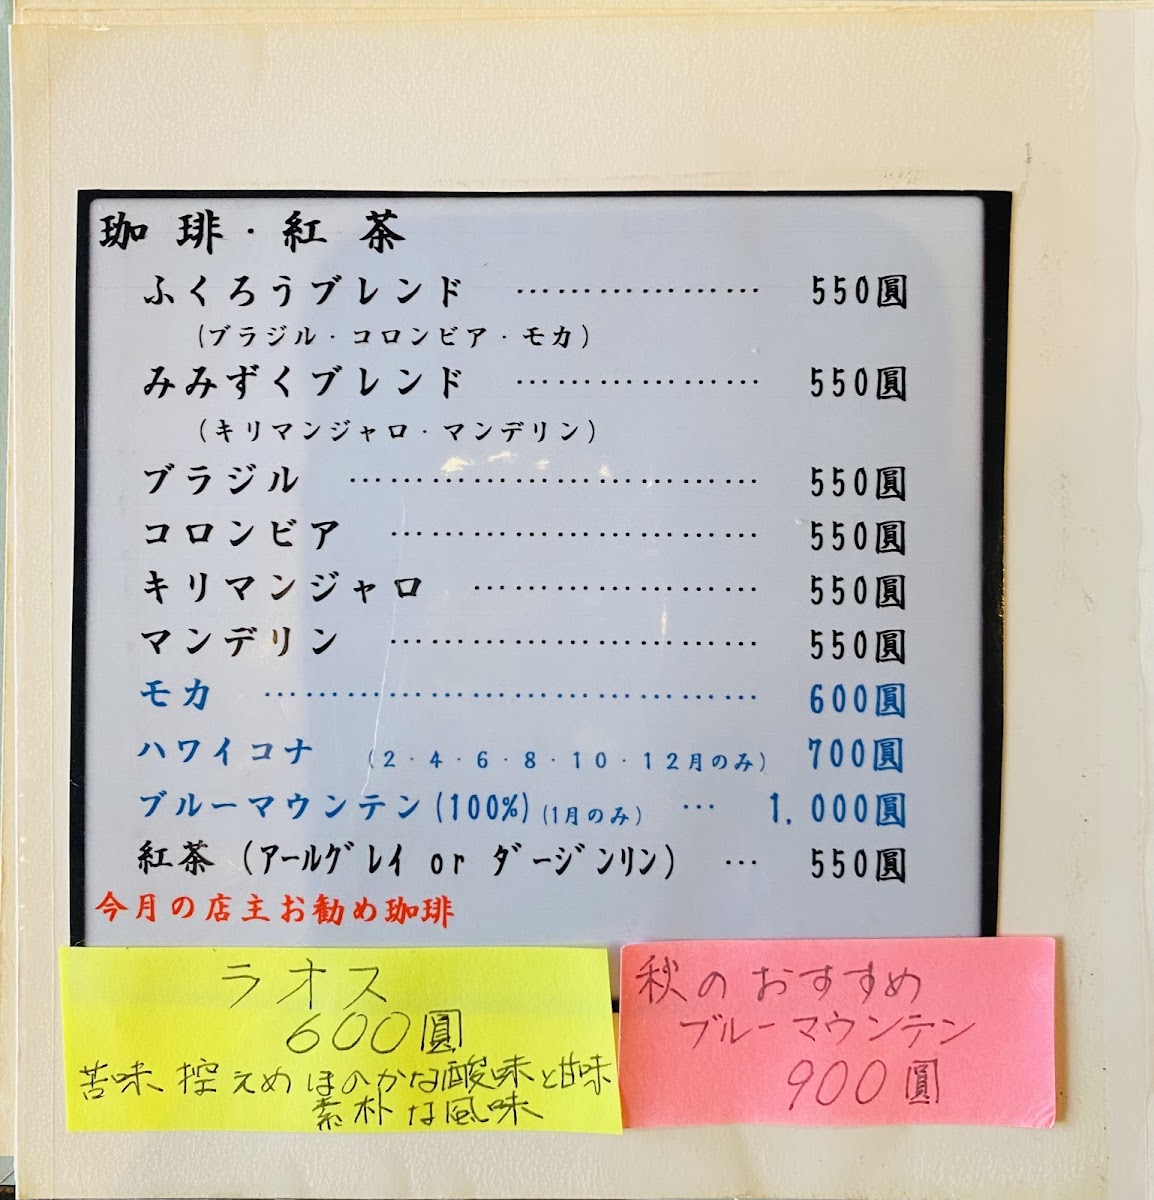 珈琲・紅茶
ふくろうブレンド ………………… 550圓
(ブラジル・コロンビア・モカ)
みみずくブレンド ………………… 550圓
(キリマンジャロ・マンデリン)
ブラジル ………………………… 550圓
コロンビア ……………………… 550圓
キリマンジャロ ………………… 550圓
マンデリン ……………………… 550圓
モカ ……………………………… 600圓
ハワイコナ (2・4・6・8・10・12月のみ) 700圓
ブルーマウンテン(100%)(1月のみ) … 1,000圓
紅茶(アールグレイ or ダージンリン) … 550圓
今月の店主お勧め珈琲
ラオス
600圓
苦味、控えめほのかな酸味と甘味
素朴な風味
秋のおすすめ
ブルーマウンテン
900圓